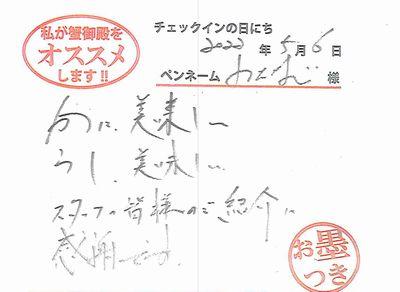 私が蟹御殿を
オススメ
します!!
チェックインの日にち
2022年5月6日
ペンネーム 様
かに、美味し〜
うし、美味し〜
スタッフの皆様のご紹介に
感謝です。
お墨
つき